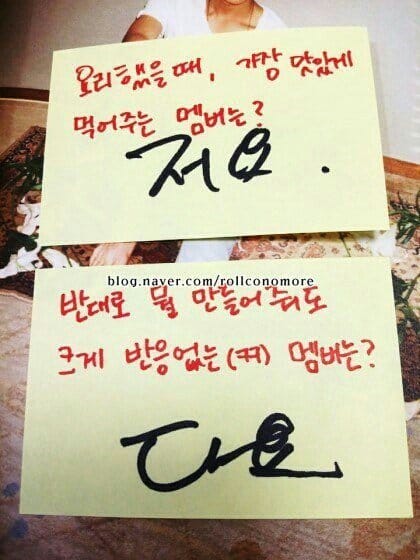 요리했을때, 가장 맛있게
먹어주는 멤버는?
저요.
blog.naver.com/rollconomore
반대로 뭘 만들어줘도
크게 반응없는(ㅋㅋ) 멤버는?
다요